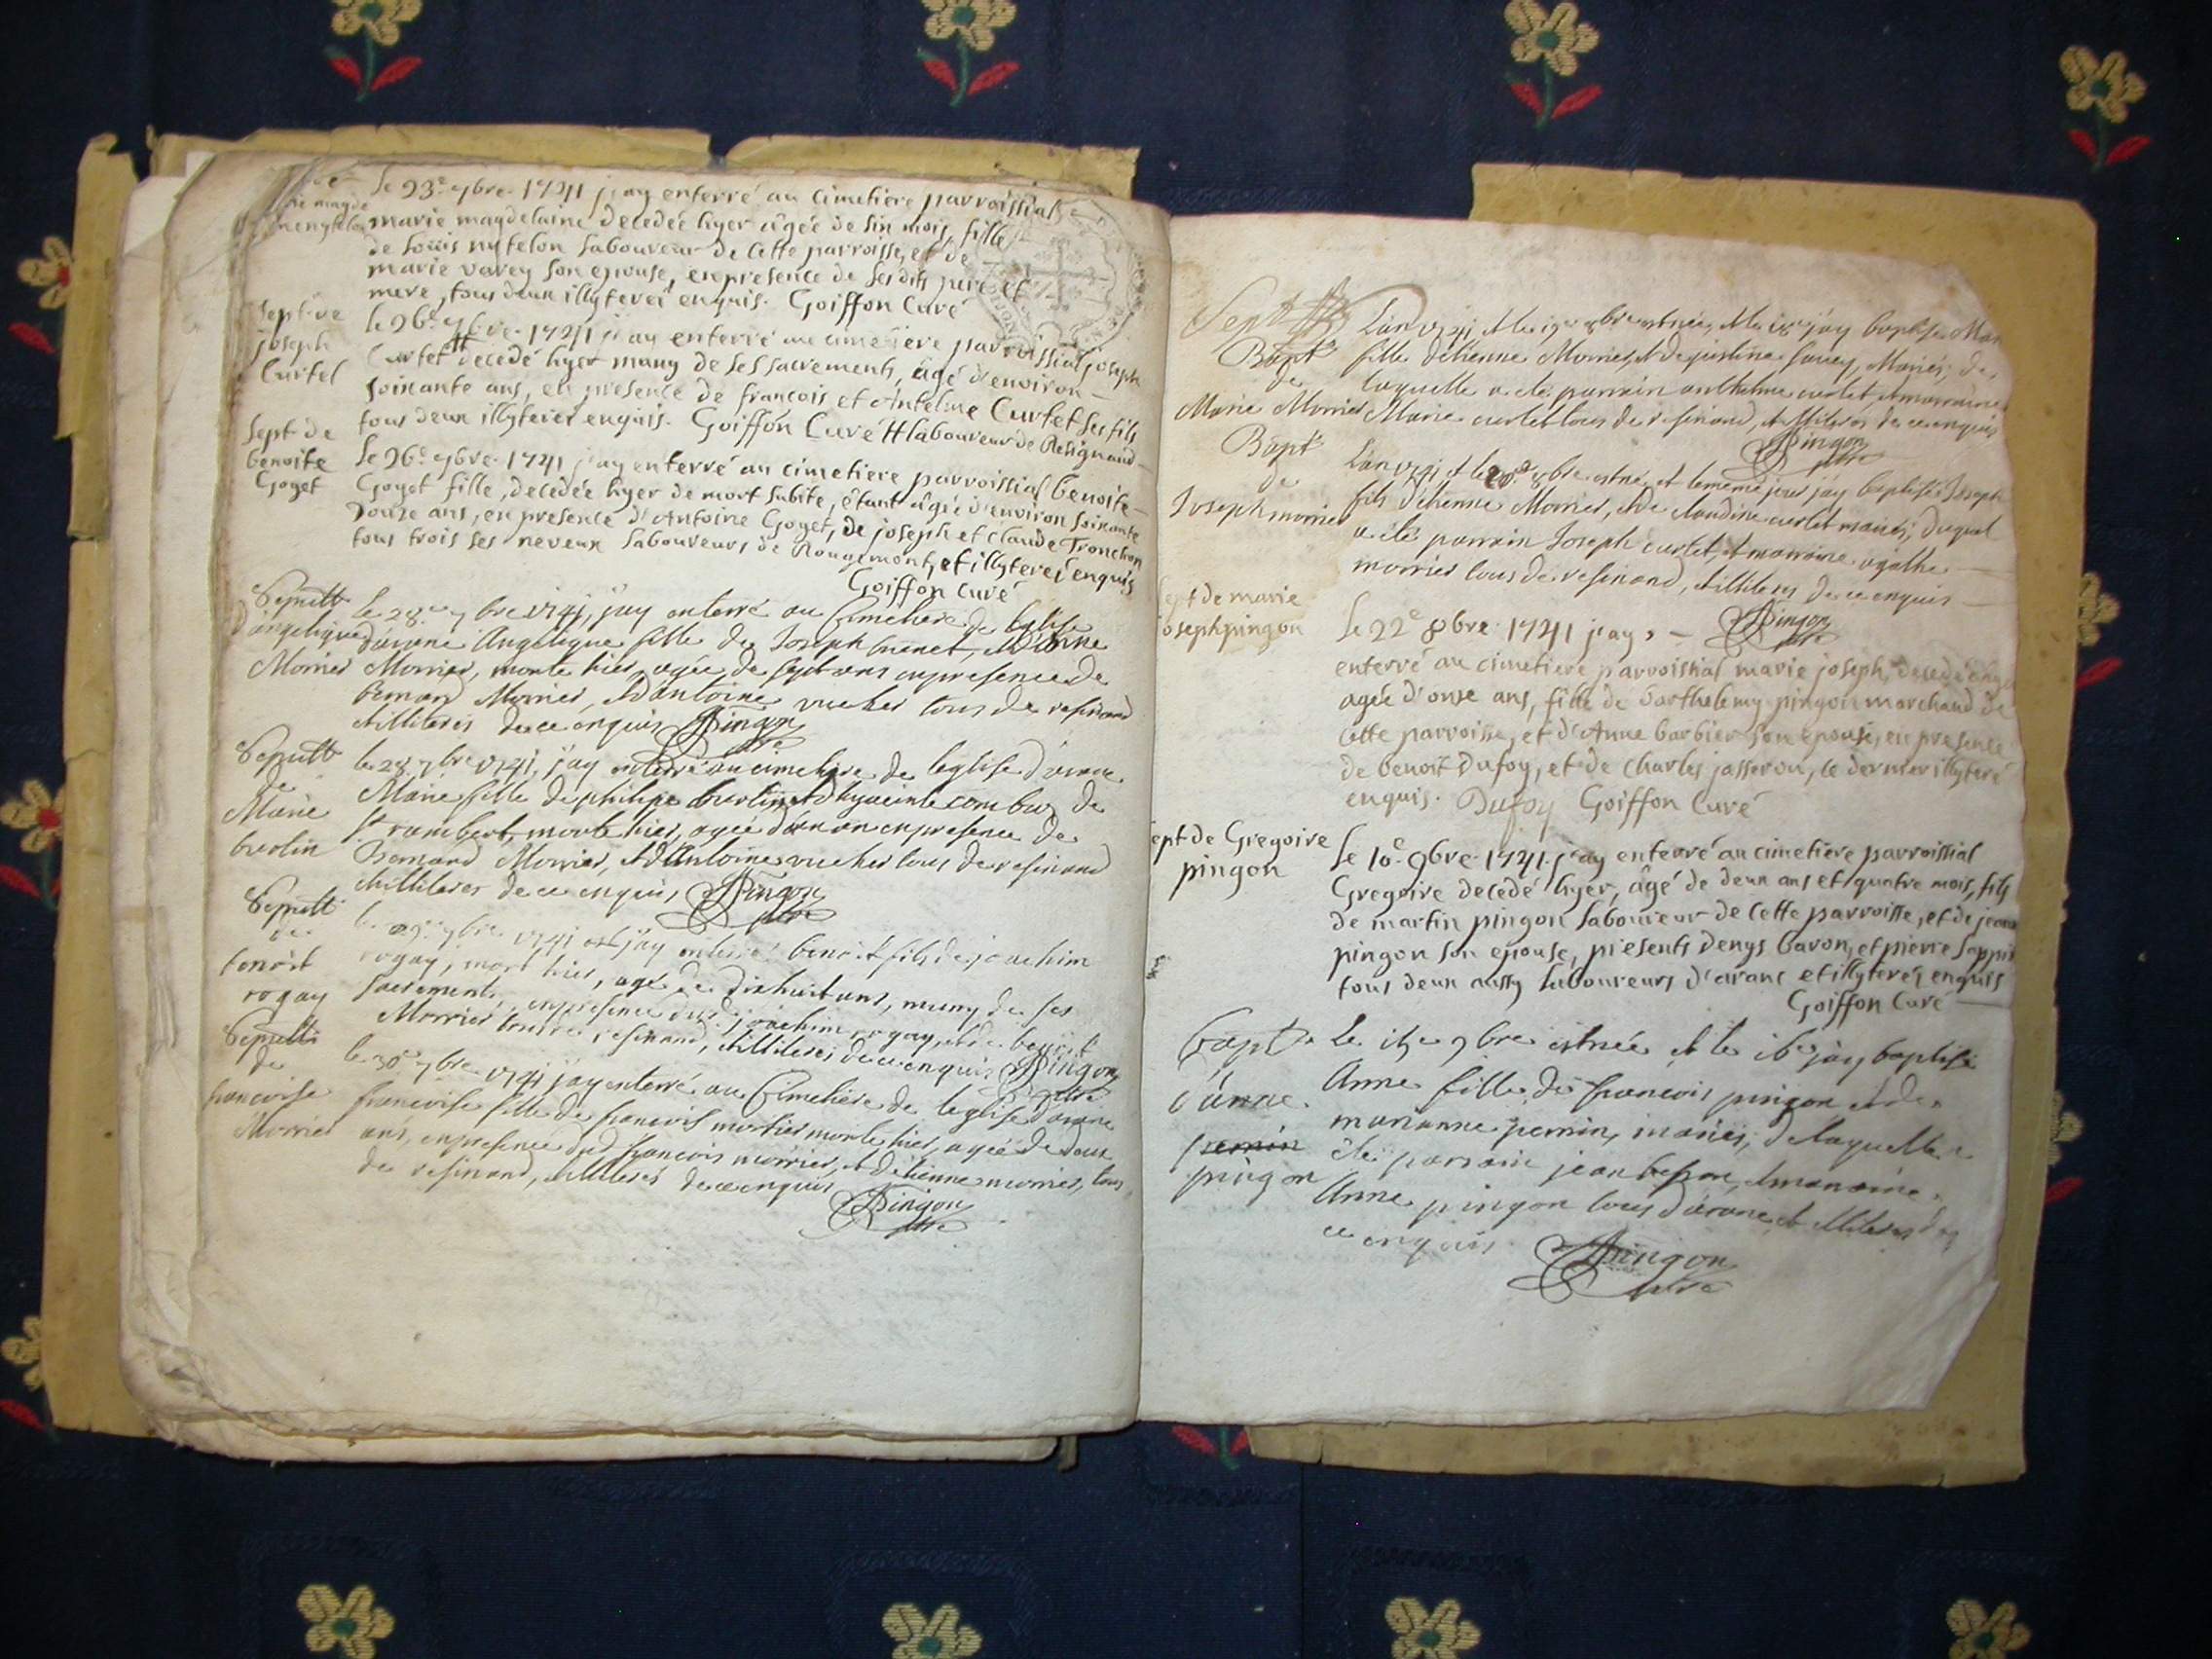 le 23e 7bre 1741 j'ay enterré au cimetiere parroissial
marie magdelaine decedée hyer âgée de six mois, fille
de Loüis nytelon laboureur de cette parroisse, et de
marie varey son epouse, en presence de ses dits pere et
mere, tous deux illyterés enquis. Goiffon Curé
Sept. de
joseph
Curtet
le 26e 7bre 1741 j'ay enterré au cimetiere parroissial joseph
Curtet decedé hyer muny de ses sacrements, âgé d'environ
soixante ans, en presence de françois et Antelme Curtet ses fils
tous deux illyterés enquis. Goiffon Curé # laboureur de Resignand
Sept. de
benoite
Goyet
le 26e 7bre 1741 j'ay enterré au cimetiere parroissial benoite
Goyet fille, decedée hyer de mort subite, étant âgée d'environ soixante
douze ans, en presence d'Antoine Goyet, de joseph et Claude Tronchon
tous trois ses neveux laboureurs de Rougemont, et illyterés enquis
Goiffon Curé
Sepult
d'angelique
Morrier
le 28e 7bre 1741, j'ay enterré au Cimetiere de leglise
d'arane Angelique fille de Joseph
Morrier, morte hier, agée de sept ans en presence de
bernard Morrier, et d'antoine vucher tous de resinand
et illiterés de ce enquis Pingon
ptre
Sepult
de
Marie
brolin
le 28 7bre 1741, j'ay enterré au cimetiere de leglise d'arane
Marie fille de philipe brolin et d'hyacinte combaz de
St rambert, morte hier, agée d'un an en presence de
Bernard Morrier, et d'Antoine vucher tous de resinand
et illiteres de ce enquis Pingon
ptre
Sepult
de
benoit
rogay
le 29e 7bre 1741 j'ay enterré benoit fils de joachim
rogay, mort hier, agé de dixhuit ans, muny de ses
sacrements, en presence dud. joachim rogay, et de benoit
Morrier tous de resinand, et illiteres de ce enquis Pingon
ptre
Sepult
de
francoise
Morrier
le 30e 7bre 1741 j'ay enterré au Cimetiere de leglise d'arane
francoise fille de francois morrier morte hier, agée de deux
ans, en presence dud. francois morrier, et d'etienne morrier, tous
de resinand, et illiterés de ce enquis
Pingon
ptre
Sept
Bapt
de
Marie Morrier
fille d'etienne Morrier, et de justine Savey, Mariés; de
laquelle a eté parrain anthelme curtet, et marraine
Marie curtet tous de resinand, et illiteres de ce enquis
Pingon
ptre
Bapt
de
Joseph morrier
8bre est né, et le meme jour j'ay baptisé Joseph
fils d'etienne Morrier, et de claudine curtet mariés; duquel
a eté parrain Joseph curtet, et marraine agathe
morrier tous de resinand, et illiteres de ce enquis
Pingon
ptre
Sept de marie
joseph pingon
le 22e 8bre 1741 j'ay
enterré au cimetiere parroissial marie joseph, decedée hyer
agée d'onze ans, fille de barthelemy pingon marchand de
cette parroisse, et d'Anne barbier son epouse, en presence
de benoit Dufoy, et de Charles jasseron, ce dernier illyteré
enquis. Dufoy Goiffon Curé
Sept de Gregoire
pingon
le 10e 9bre 1741 j'ay enterré au cimetiere parroissial
Gregoire decedé hyer, âgé de deux ans et quatre mois, fils
de martin pingon laboureur de cette parroisse, et de jeane
pingon son epouse, presents denys Savon, et pierre
tous deux aussy laboureurs d'arane et illyterés enquis
Goiffon Curé
Bapt
d'anne
pingon
le 15e 9bre est née et le 16e j'ay baptisé
Anne fille de francois pingon et de
marianne perrin, mariés; de laquelle a
eté parrain jean besson, et marraine
Anne pingon tous d'arane, et illiteres de
ce enquis.
Pingon
ptre